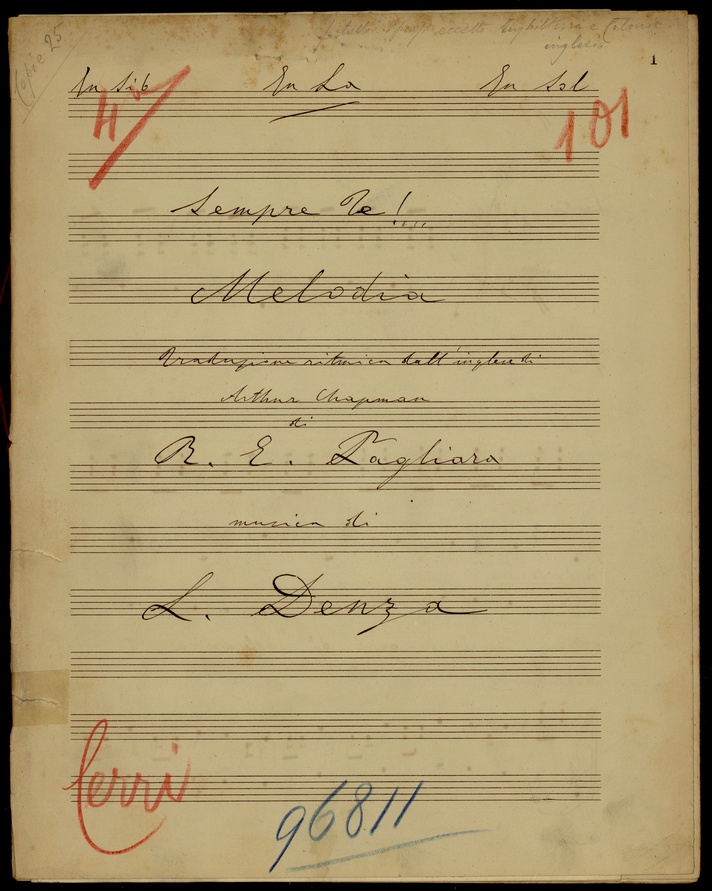 Copie 25
eccetto Inghilterra e Colonie
inglesi
1
In Sib In La In Sol
4a 101
Sempre Te!....
Melodia
Traduzione ritmica dall'inglese di
Arthur Chapman
di
R. E. Pagliara
musica di
L. Denza
Cerri
96811